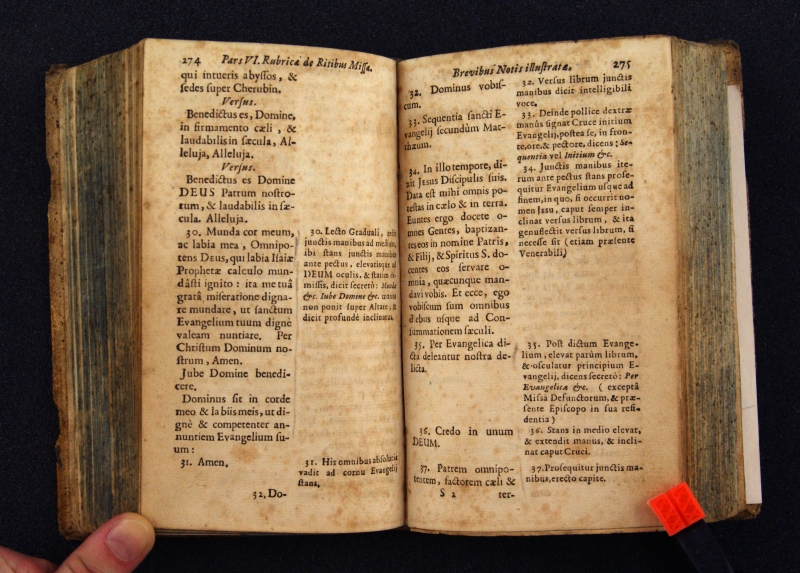 274 Pars VI. Rubricæ de Ritibus Missæ.
qui intueris abyssos, &
sedes super Cherubin.
Versus.
Benedictus es, Domine,
in firmamento cæli, &
laudabilis in sæcula, Al-
leluja, Alleluja.
Versus.
Benedictus es Domine
DEUS Patrum nostro-
rum, & laudabilis in sæ-
cula. Alleluja.
30. Munda cor meum,
ac labia mea, Omnipo-
tens Deus, qui labia Isaiæ
Prophetæ calculo mun-
dâsti ignito: ita me tuâ
gratâ miseratione digna-
re mundare, ut sanctum
Evangelium tuum dignè
valeam nuntiare. Per
Christum Dominum no-
strum, Amen.
Jube Domine benedi-
cere.
Dominus sit in corde
meo & labiis meis, ut di-
gnè & competenter an-
nuntiem Evangelium su-
um:
31. Amen.
30. Lecto Graduali,
junctis manibus ad medium,
ibi stans junctis manibus
ante pectus, elevatisque ad
DEUM oculis, & statim de-
missis, dicit secretò: Munda
&c. Iube Domine &c.
non ponit super Altare,
dicit profundè inclinatus.
31. His omnibus absolutis
vadit ad cornu Evangelij
stans.
32. Do-
Brevibus Notis illustratæ. 275
32. Dominus vobis-
cum.
33. Sequentia sancti E-
vangelij secundùm Mat-
thæum.
34. In illo tempore, di-
xit Jesus Discipulis suis.
Data est mihi omnis po-
testas in cælo & in terra.
Euntes ergo docete o-
mnes Gentes, baptizan-
tes eos in nomine Patris,
& Filij, & Spiritus S. do-
centes eos servare o-
mnia, quæcunque man-
davi vobis. Et ecce, ego
vobiscum sum omnibus
diebus usque ad Con-
summationem sæculi.
35. Per Evangelica di-
cta deleantur nostra de-
licta.
36. Credo in unum
DEUM.
37. Patrem omnipo-
tentem, factorem cæli &
32. Versus librum junctis
manibus dicit intelligibili
voce.
33. Deinde pollice dextræ
manûs signat Cruce initium
Evangelij, postea se, in fron-
te, ore, & pectore, dicens: Se-
quentia vel Initium &c.
34. Junctis manibus ite-
rum ante pectus stans prose-
quitur Evangelium usque ad
finem, in quo, si occurrit no-
men Jasu, caput semper in-
clinat versus librum, & ita
genuflectit versus librum, si
necesse sit (etiam præsente
Venerabili)
35. Post dictum Evange-
lium, elevat parùm librum,
& osculatur principium E-
vangelij, dicens secretò: Per
Evangelica &c. (exceptâ
Missa Defunctorum, & præ-
sente Episcopo in sua resi-
dentia)
36. Stans in medio elevat,
& extendit manus, & incli-
nat caput Cruci.
37. Prosequitur junctis ma-
nibus, erecto capite.
S 2 ter-